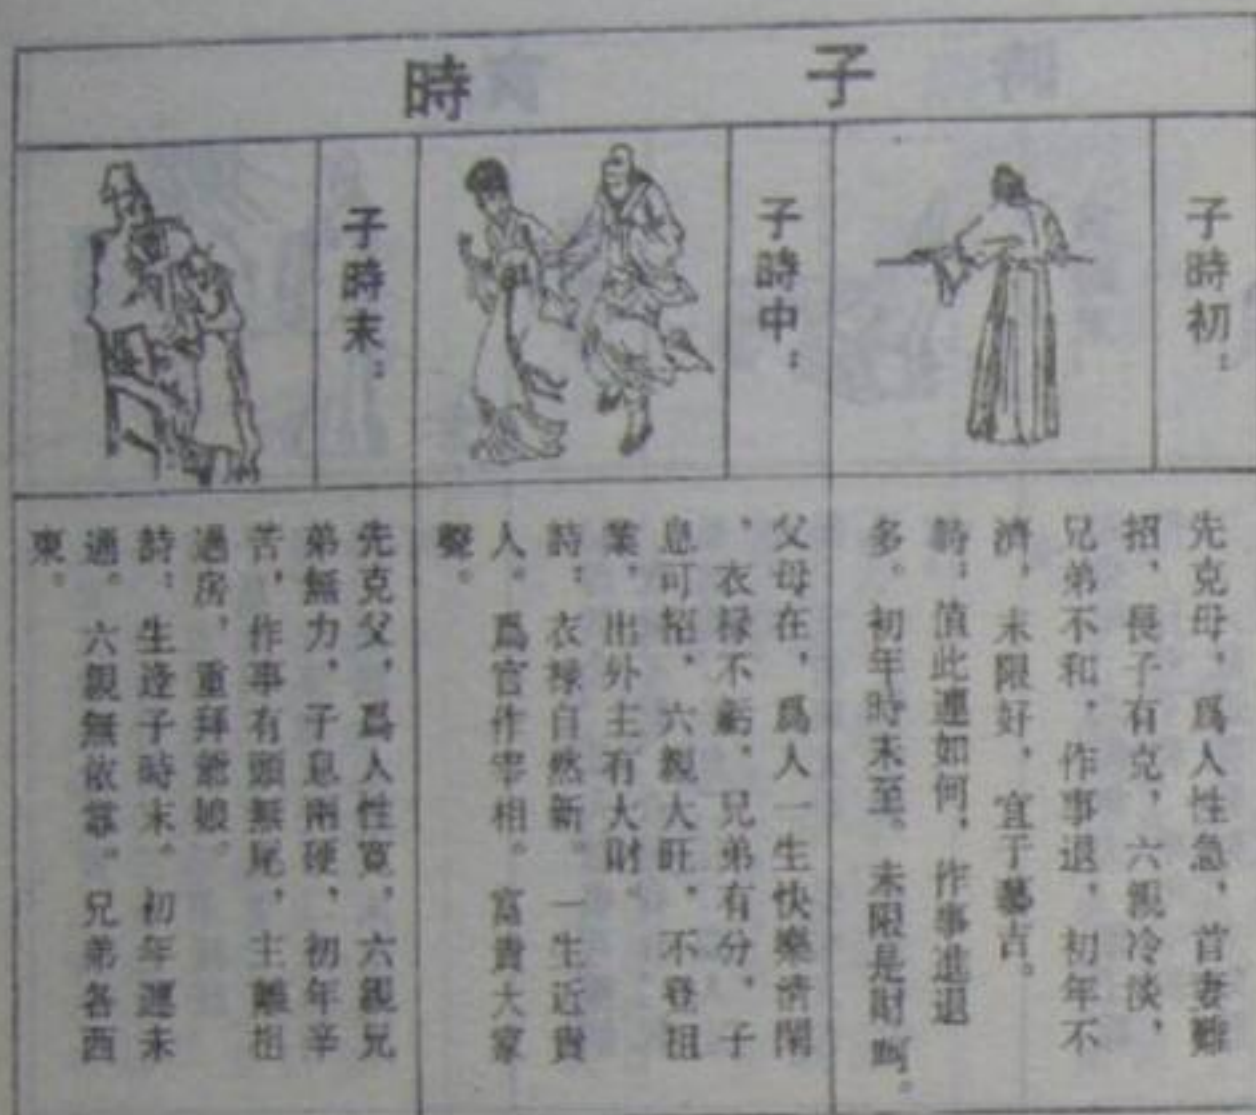 子時
子時初：
先克母，爲人性急，首妻難
招，長子有克，六親冷淡，
兄弟不和，作事退，初年不
濟，末限好，宜于藝吉。
詩：值此運如何，作事進退
多。初年時未至。未限是財
子時中：
父母在，爲人一生快樂清閑
，衣禄不虧，兄弟有分，子
息可招，六親大旺，不登祖
業，出外主有大財。
詩：衣禄自然新。一生近貴
人。爲官作宰相。富貴大家
聲。
子時末：
先克父，爲人性寬，六親兄
弟無力，子息兩硬，初年辛
苦，作事有頭無尾，主離祖
過房，重拜爺娘。
詩：生逢子時末。初年運未
通。六親無依靠。兄弟各西
東。